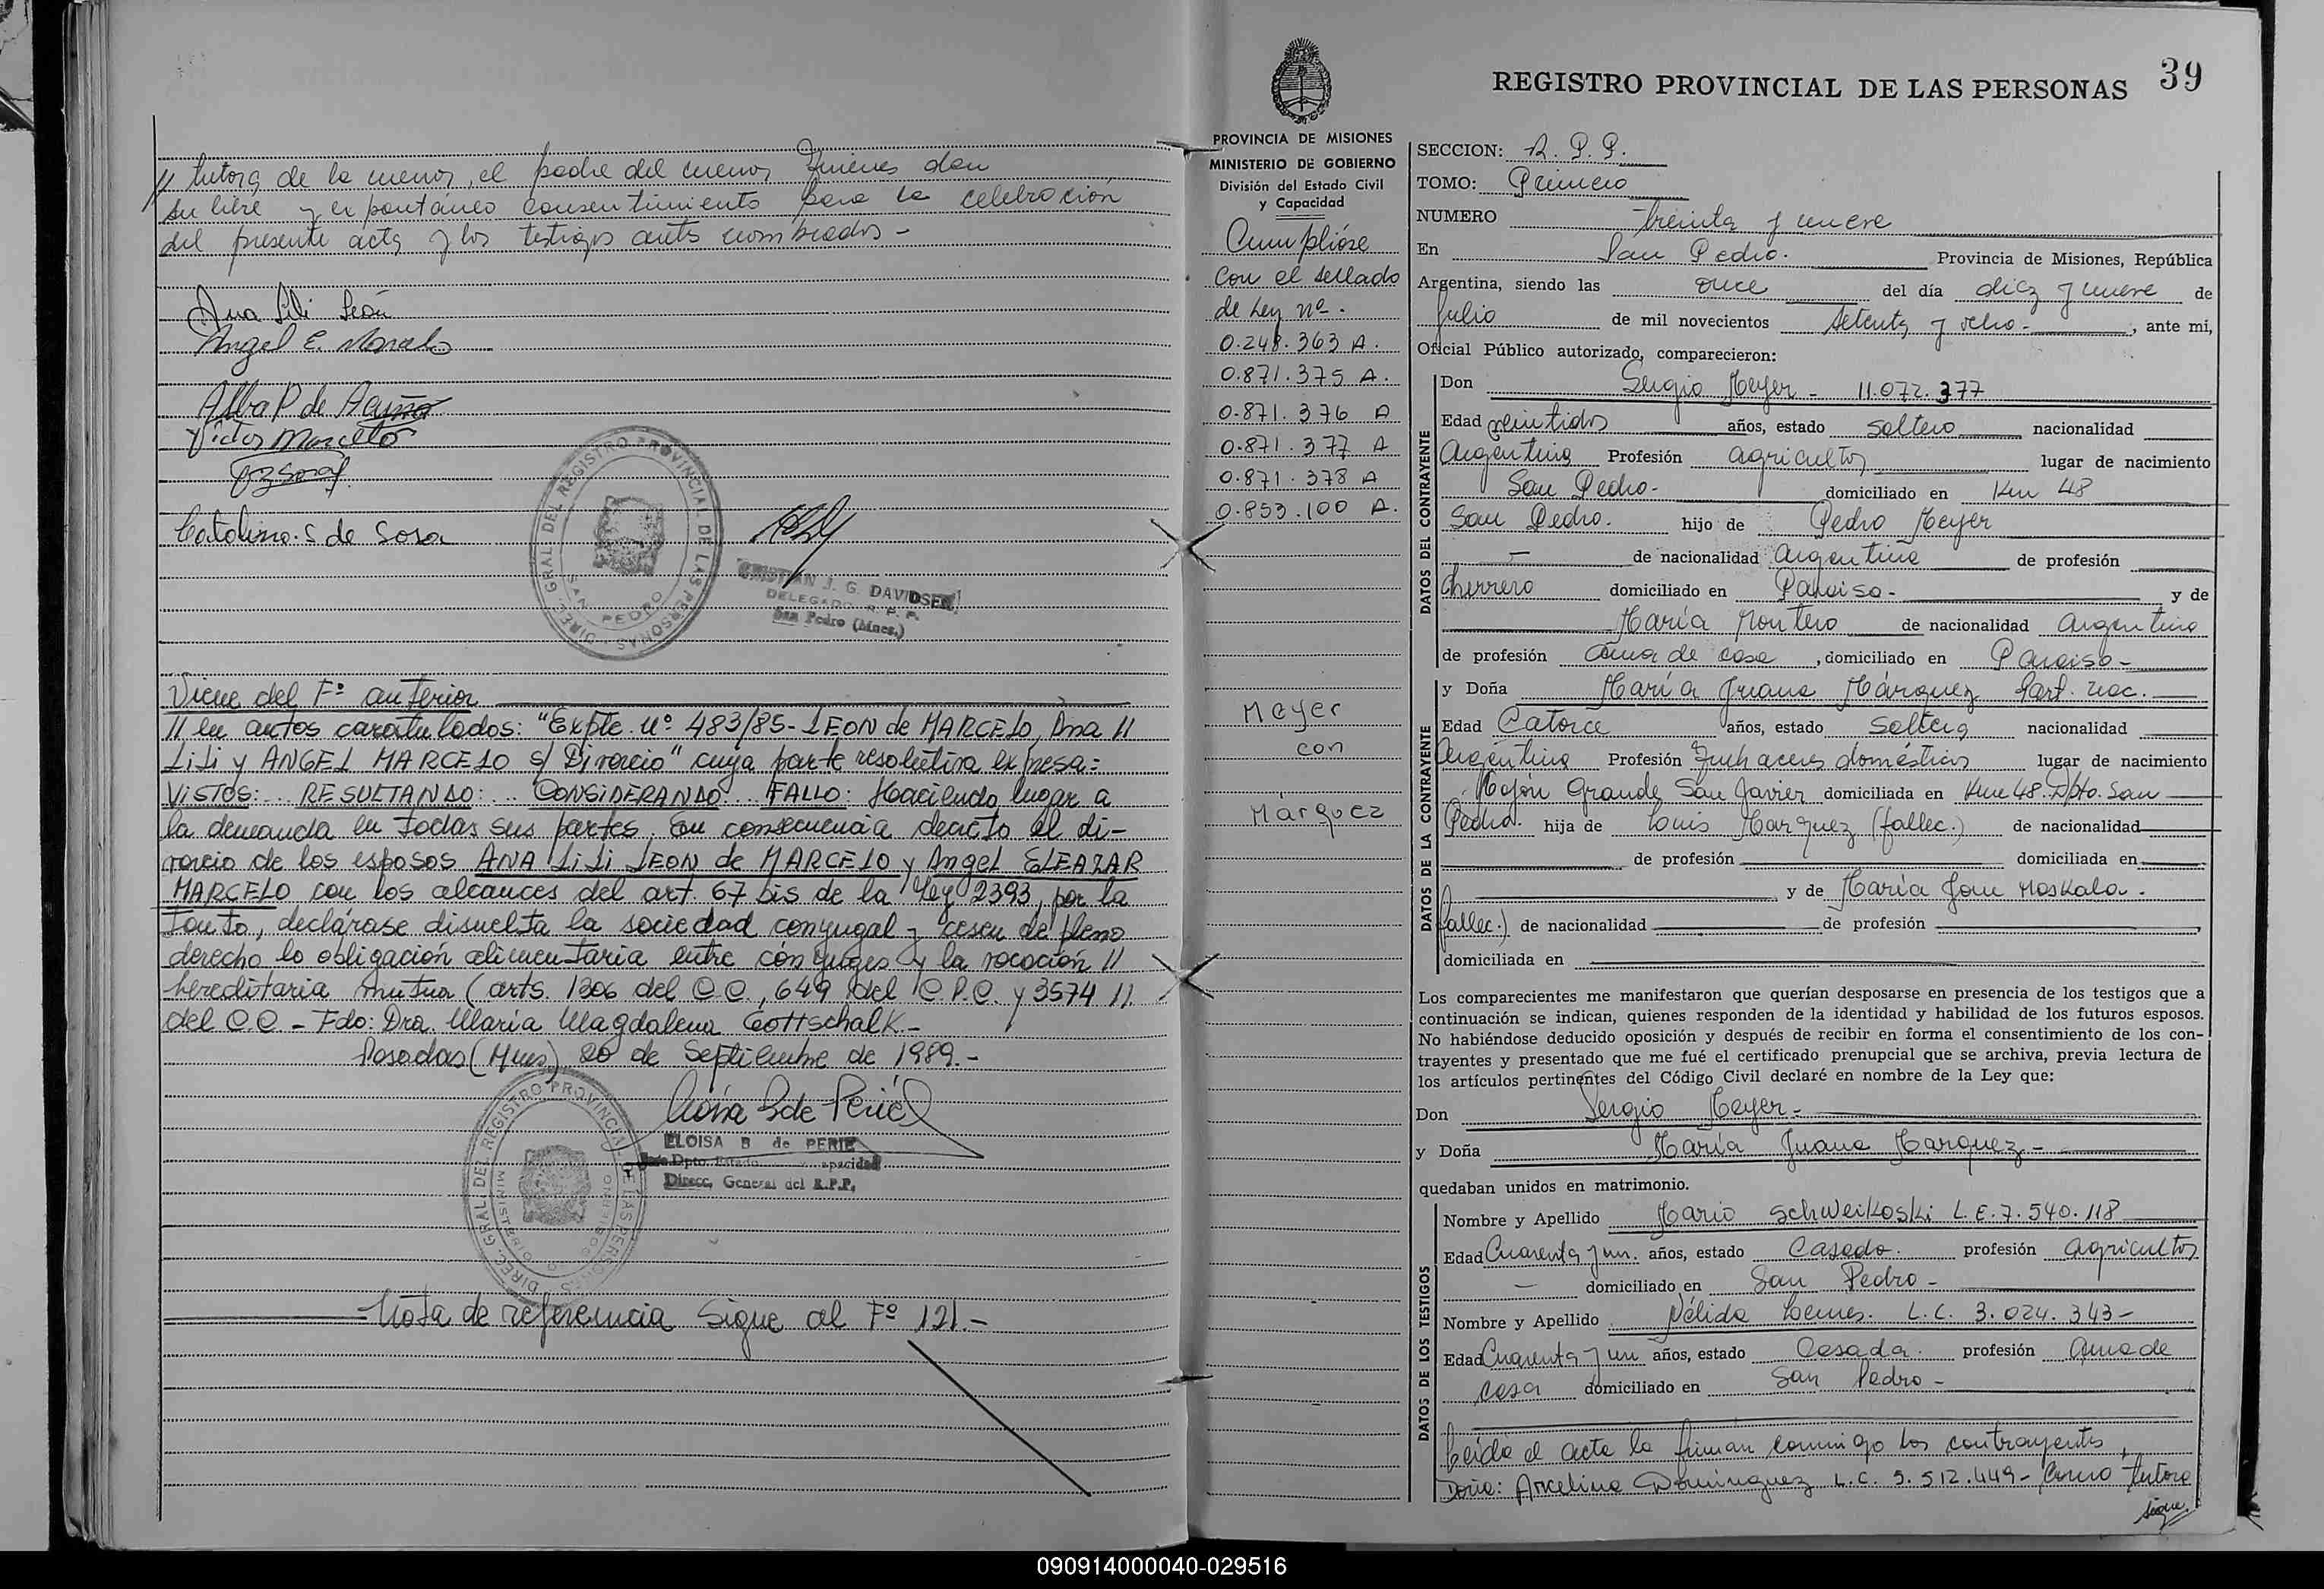 // tutora de la menor, el padre del menor quienes dan
su libre y expontáneo consentimiento para la celebración
del presente acta y los testigos antes nombrados -
Ana Lili León
Angel E. Marcelo
Alba P de Acuña
Victor Marcello
Catalina. S de Sosa
DIREC. GRAL. DEL REGISTRO PROVINCIAL DE LAS PERSONAS
SAN PEDRO
CRISTIAN J. G. DAVIDSEN
DELEGADO R. P. P.
San Pedro (Mnes.)
Viene del Fº anterior
// en autos caratulados: "Expte. Nº 483/85 - LEON de MARCELO, Ana //
LiLi y ANGEL MARCELO s/ Divorcio" cuya parte resolutiva expresa:
VISTOS:... RESULTANDO:... CONSIDERANDO... FALLO: Haciendo lugar a
la demanda en todas sus partes. En consecuencia decreto el di-
vorcio de los esposos ANA LiLi LEON de MARCELO y Angel ELEAZAR
MARCELO con los alcances del art. 67 bis de la Ley 2393, por la
tanto, declárase disuelta la sociedad conyugal y cesen de pleno
derecho lo obligación alimentaria entre cónyuges y la vocación //
hereditaria mutua (arts. 1306 del C.C., 649 del C.P.C. y 3574 //
del C.C - Fdo: Dra. María Magdalena Gottschalk.-
Posadas (Mnes) 20 de Septiembre de 1989.-
ELOISA B de PERIE
Jefe Dpto. Estado
Direcc. General del R.P.P.
DIREC. GRAL. DEL REGISTRO PROVINCIAL DE LAS PERSONAS
Nota de referencia sigue al Fº 121.-
PROVINCIA DE MISIONES
MINISTERIO DE GOBIERNO
División del Estado Civil
y Capacidad
Cumplióse
con el sellado
de Ley nº.
0.248.363 A.
0.871.375 A.
0.871.376 A
0.871.377 A
0.871.378 A
0.853.100 A.
Meyer
con
Márquez
REGISTRO PROVINCIAL DE LAS PERSONAS 39
SECCION: R. P. P.
TOMO: Primero
NUMERO treinta y nueve
En San Pedro. Provincia de Misiones, República
Argentina, siendo las once del día diez y nueve de
Julio de mil novecientos setenta y ocho- , ante mi,
Oficial Público autorizado, comparecieron:
DATOS DEL CONTRAYENTE
Don Sergio Meyer - 11.072.377
Edad veintidos años, estado soltero nacionalidad
Argentina Profesión agricultor lugar de nacimiento
San Pedro- domiciliado en Km 48
San Pedro. hijo de Pedro Meyer
- de nacionalidad Argentina de profesión
Chorrero domiciliado en Paraiso- y de
María Montero de nacionalidad Argentina
de profesión ama de casa , domiciliado en Paraiso-
DATOS DE LA CONTRAYENTE
y Doña María Juana Márquez Part. nac.
Edad Catorce años, estado soltera nacionalidad
Argentina Profesión Quehaceres domésticos lugar de nacimiento
Mojón Grande San Javier domiciliada en Km 48. Dpto. San
Pedro. hija de Louis Marquez (fallec.) de nacionalidad
de profesión domiciliada en
y de María Moskala.
(fallec.) de nacionalidad de profesión
domiciliada en
Los comparecientes me manifestaron que querían desposarse en presencia de los testigos que a
continuación se indican, quienes responden de la identidad y habilidad de los futuros esposos.
No habiéndose deducido oposición y después de recibir en forma el consentimiento de los con-
trayentes y presentado que me fué el certificado prenupcial que se archiva, previa lectura de
los artículos pertinentes del Código Civil declaré en nombre de la Ley que:
Don Sergio Meyer-
y Doña María Juana Marquez-
quedaban unidos en matrimonio.
DATOS DE LOS TESTIGOS
Nombre y Apellido Mario Schweikoski L.E. 7.540.118
Edad Cuarenta y un. años, estado Casado. profesión agricultor
- domiciliado en San Pedro-
Nombre y Apellido Nélida Lemes. L.C. 3.024.343-
Edad Cuarenta y un años, estado Casada. profesión Ama de
casa domiciliado en San Pedro-
Leida el acta la firman conmigo los contrayentes,
Doña: Arcelina Dominguez L.C. 5.512.449- como tutora
sigue
090914000040-029516